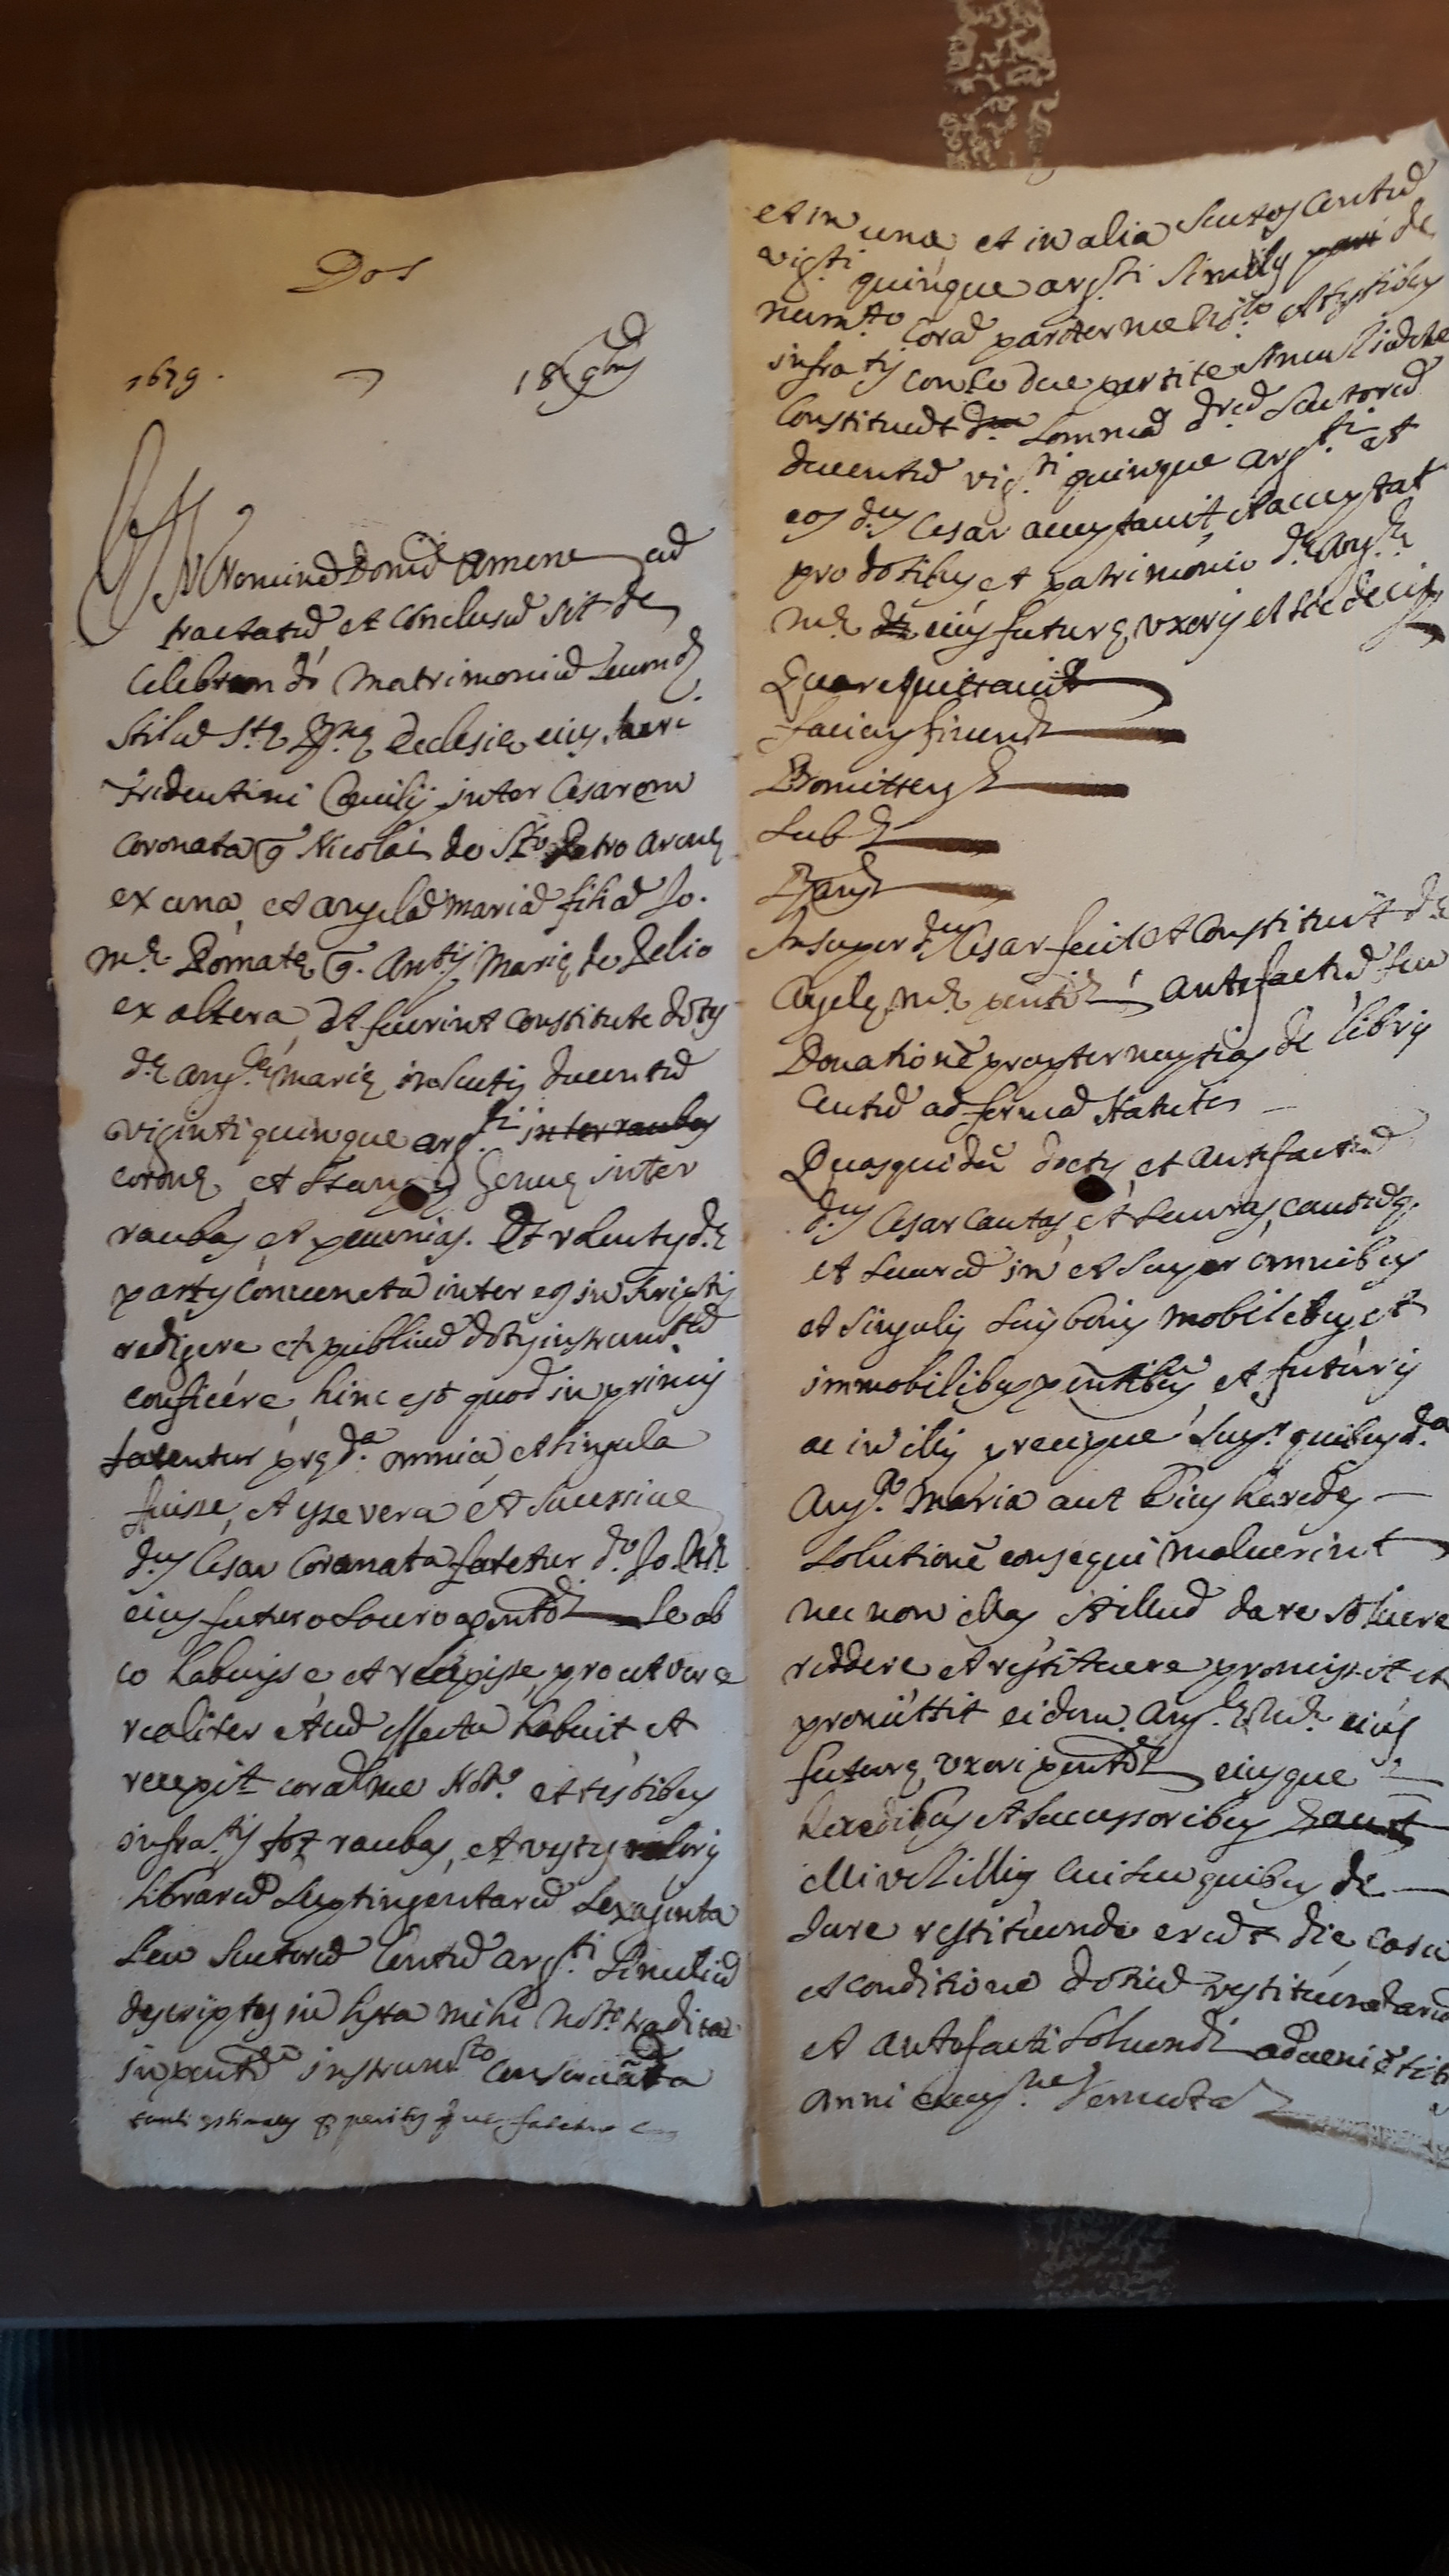 Dos
1679. 18 9bris
In Nomine Domini Amen cum
tractatum et conclusum sit de
celebrando Matrimonium secundum
stilum Stę Rnę Ecclesię eius sacri
Tridentini Concilij inter Cesarem
Coronata q Nicolai de Sto Petro Arenę
ex una, et Angelam Mariam filiam Jo.
Mę Romatę q. Antij Marię de Pelio
ex altera, Et fuerint constitute dotes
dę Anglę Marię in scutis ducentum
viginti quinque argti inter raubas
coronę, et stampę Genuę inter
raubas et pecunias. Et volentes dę
partes conveneta inter eos in scriptis
redigere et publicum dotis instrumtum
conficere, hinc est quod in primis
fatentur prędа omnia et singula
fuisse, et esse vera et sucessive
dus Cesar Coronata fatetur do Jo. Mę
eius futuro socero pnti se ab
eo habuisse et recepisse, prout vere
realiter et cum effectu habuit et
recepit coram me Noto et testibus
infratis tot raubas, et vestes valoris
librarum septingentarum sexaginta
seu scutorum centum argti similium
descriptas in lista mihi Noto tradita
in pnti instrumto consuenda
et in una et in alia scutos centum
vigti quinque argti similes pari de
numto coram pariter me Noto et testibus
infratis con le due partite simul iuncte
constituunt da sommam drum scutorum
ducentum vigti quinque argti et
eos dus Cesar acceptavit, et acceptat
pro dotibus et patrimonio dę Anglę
Mę dę eius future uxoris et sic de eis
Quare quittavit
faciens finem
Promittens
Sub
Pro
Insuper dus Cesar fecit et constituit dę
Angelę Mę pnti antefactum seu
Donationē propter nuptias de libris
centum ad formam statuti
Quasquidē dotes et antefactum
dus Cesar cautas, et securas, cautumq.
et securum in et super omnibus
et singulis suis bonis mobilibus et
immobilibus pntibus et futuris
ac in illis precipue supr quibus da
Angla Maria aut eius heredes
solutionē consequi maluerint
nec non illas et illud dare solvere
reddere et restituere promisit et
promittit eidem Anglę Mę eius
futurę uxori pnti eiusque
heredibus et sucessoribus
illi vel illis cui seu quibus de
iure restituende erunt die, casu
et conditione dotium restituendarum
et antefacti solvendi advenientib
anni cuiusne remota